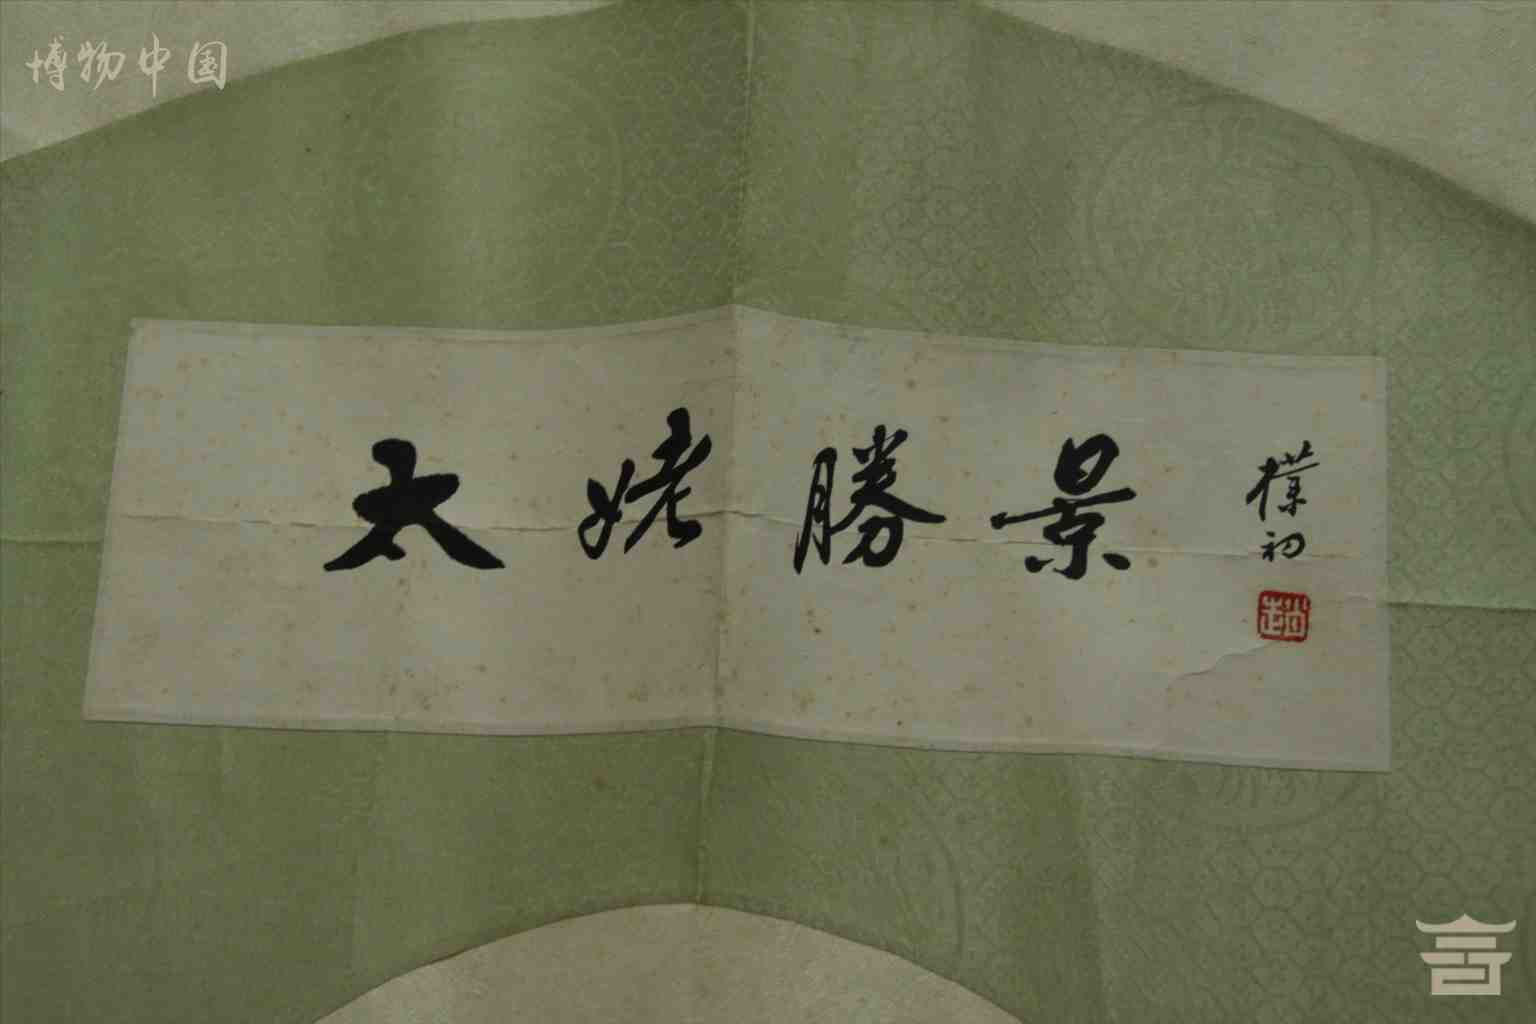 博物中国
太姥勝景
樸初